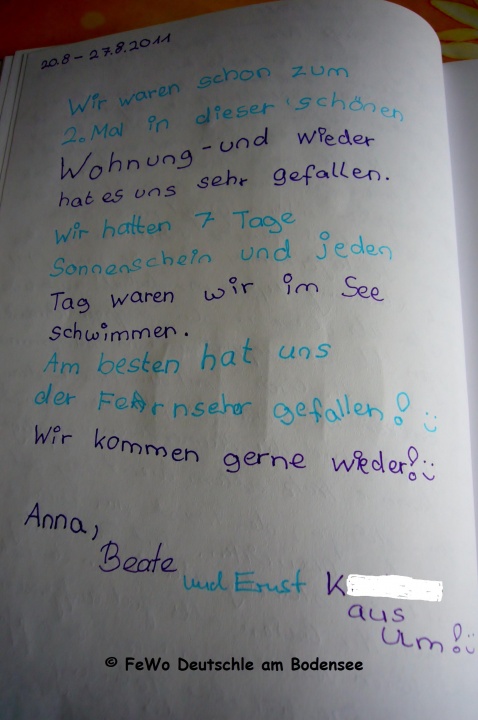 20.8 – 27.8.2011
Wir waren schon zum
2. Mal in dieser schönen
Wohnung - und wieder
hat es uns sehr gefallen.
Wir hatten 7 Tage
Sonnenschein und jeden
Tag waren wir im See
schwimmen.
Am besten hat uns
der Fernseher gefallen!
Wir kommen gerne wieder!
Anna,
Beate
und Ernst K
aus
Ulm!
© FeWo Deutschle am Bodensee